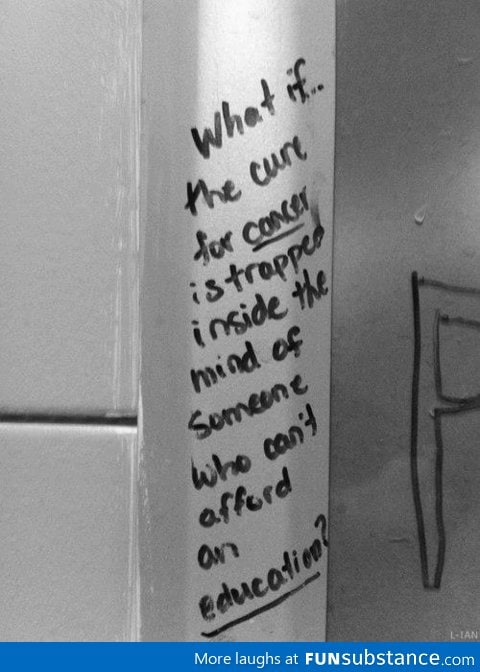 What if..
the cure
for cancer
is trapped
inside the
mind of
someone
who can't
afford
an
education?
P
L-IAN
More laughs at FUNsubstance.com